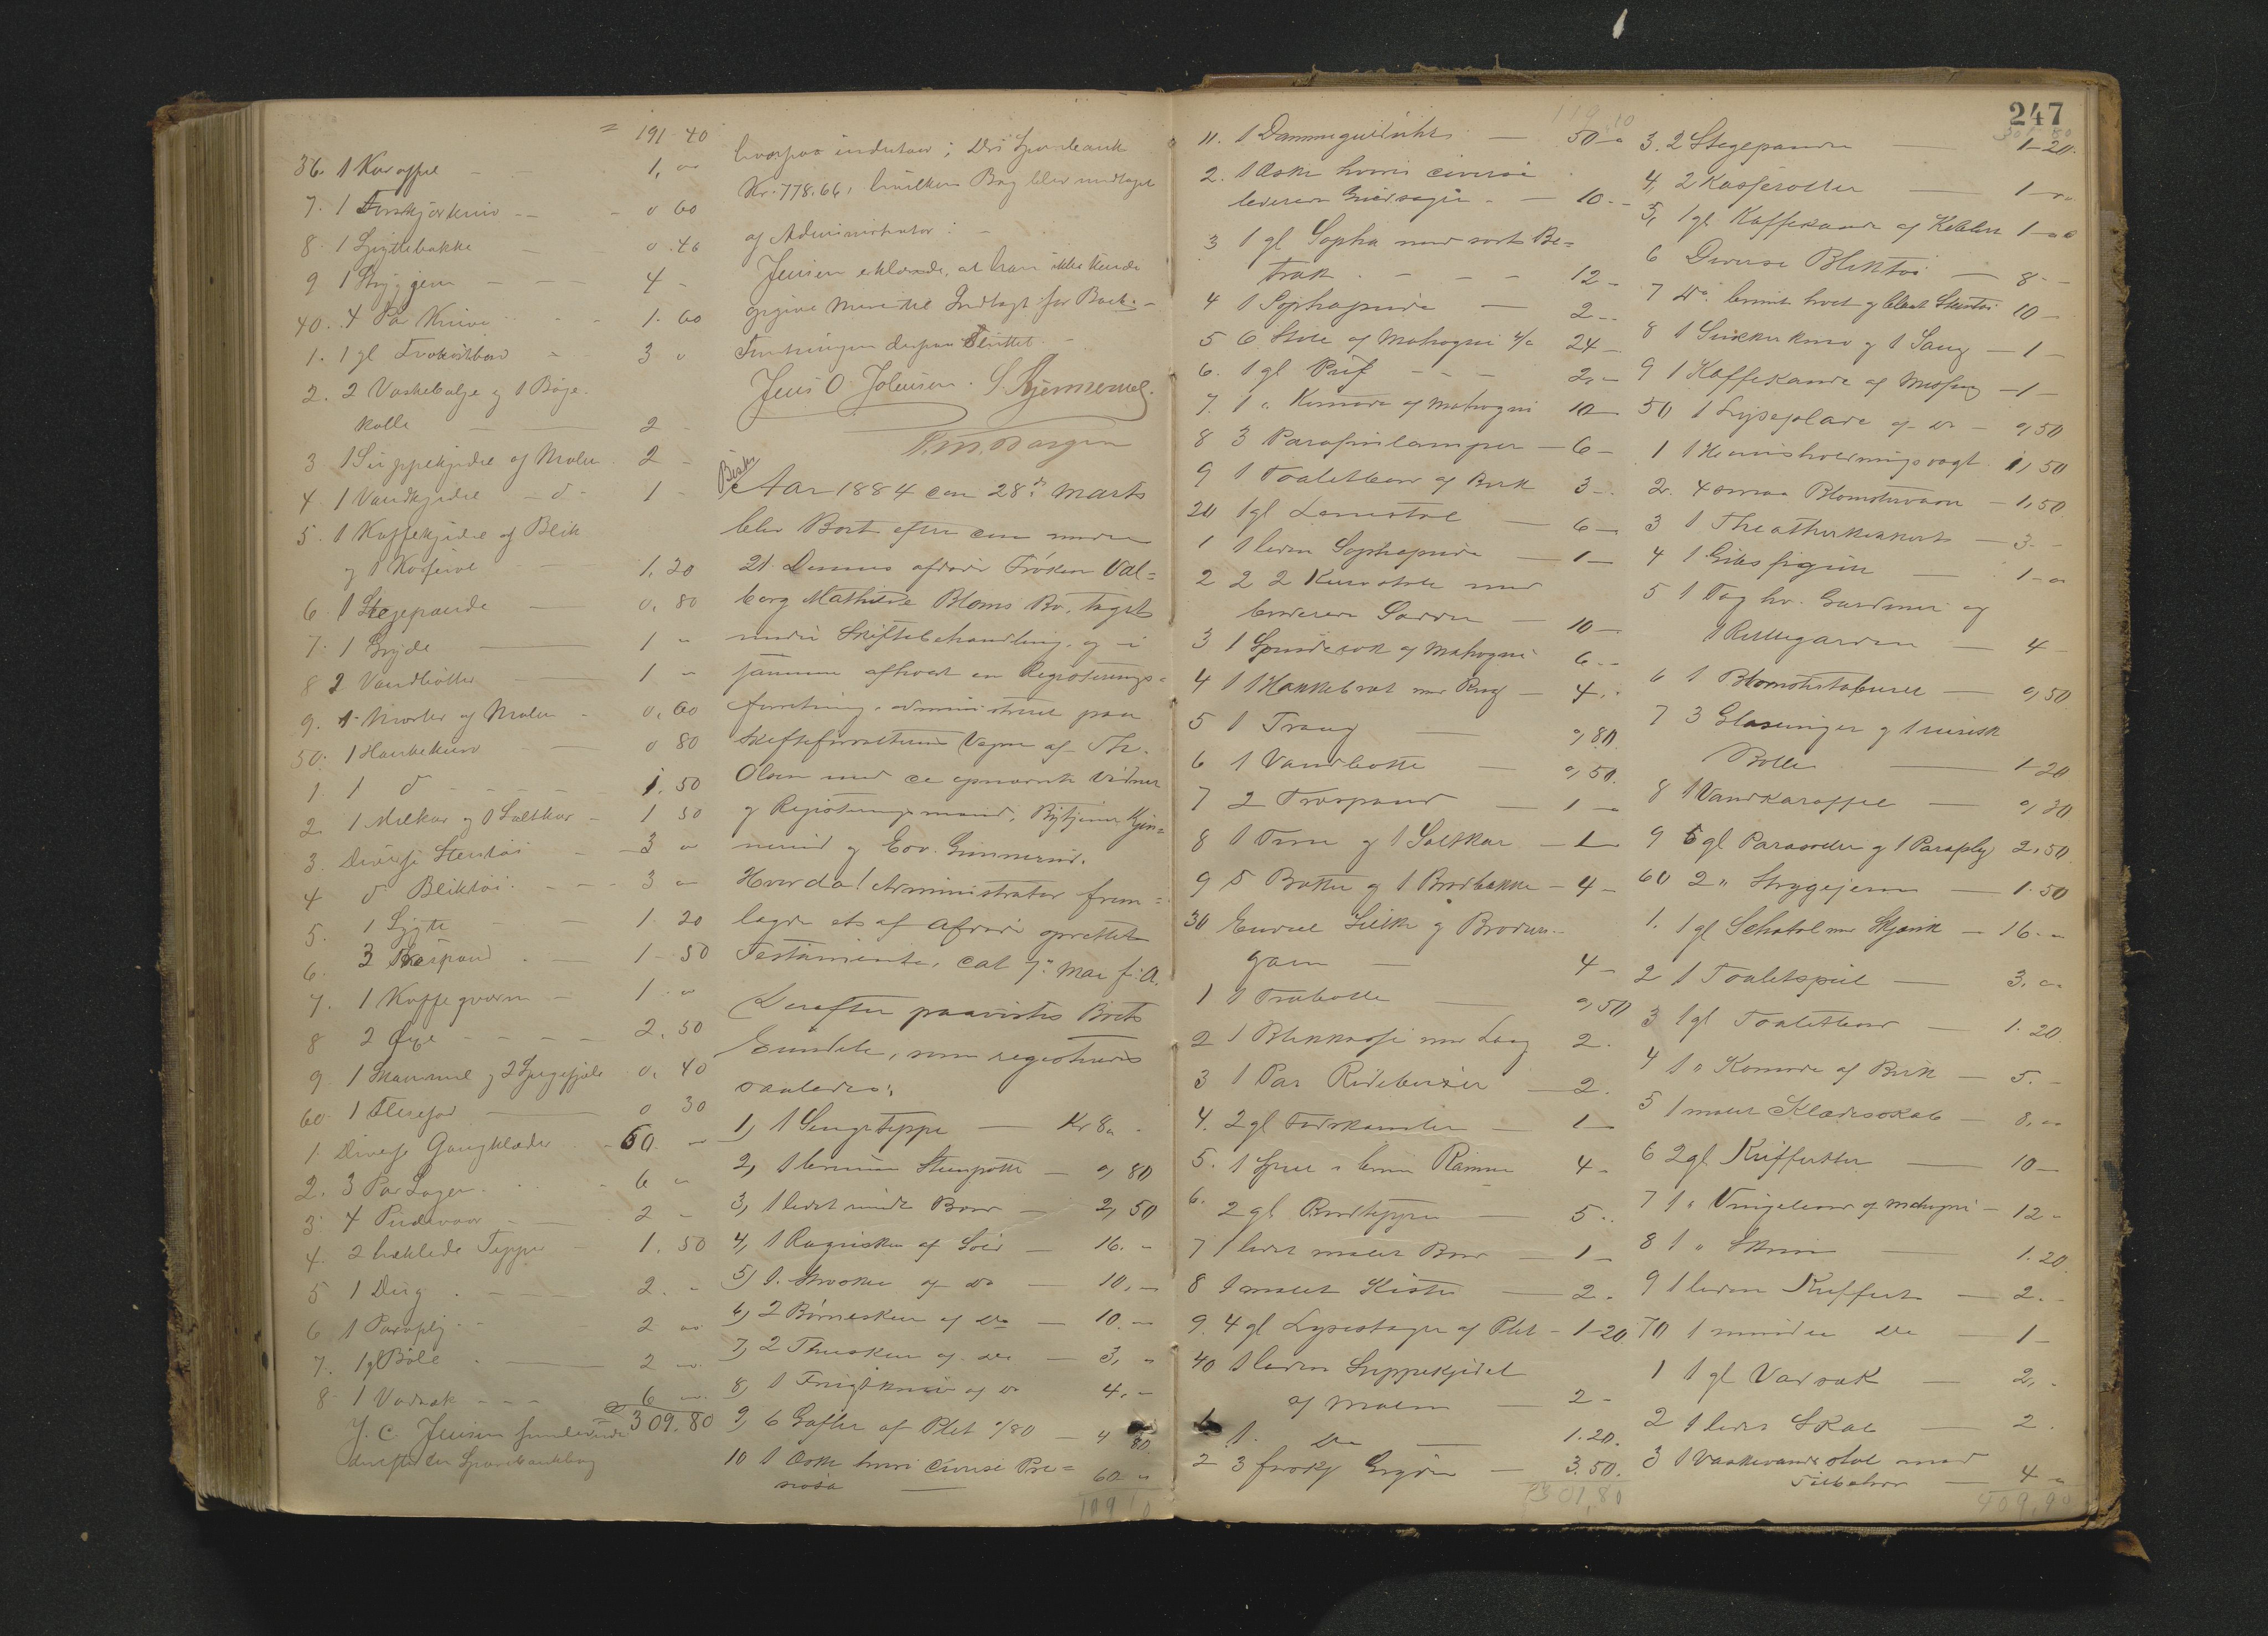 = 191-40
36. 1 Karaffel - - 1, 00
7. 1 Forskjærkniv - - 0 60
8. 1 Lygtebakke - 0.40
9 1 Strygjern - - - 4 -
40. 4 Par Knive - - 1. 60
1. 1 gl Bord - 3 0
2. 2 Vaskebalje og 1 Bøge-
kolle - 2 -
3 1 Suppekjedel af Malm 2 -
4. 1 Vandkjedel - d - 1 -
5. 1 Kaffekjedel af Blik
og 1 Kasserol - 1. 20
6. 1 Stegepande - 0. 80
7. 1 Gryde - 1 "
8 2 Vandbøtter - 1 "
9. 1 Morter af Malm - 0. 60
50. 1 Hankekurv - 0 80
1. 1 d - - - 1. 50
2. 1 Melkar og 1 Saltkar - 1 50
3. Diverse Stentøi - 3 "
4 d Bliktøi - - - 3 "
5. 1 Lygte - - 1. 20
6. 3 Træspand - - 1 - 50
7. 1 Kaffeqværn - 1 . "
8 2 Øxe - - - - 2. 50
9 1 og 2 0. 40
60. 1 - 0 30
1. Diverse Gangklæder - 60. "
2. 3 Par Lagen - 6 "
3. 4 Pudevaar - 2 -
4. 2 heklede Tepper - 1. 50
5 1 - 2. -
6 1 Paraply - - 2 "
7. 1 gl - 2 "
8. 1 Vadsæk - - - 6 "
309. 80
J. C. Jensen
derefter en Sparebankbog
hvorpaa indestaar i Dr. Sparebank
Kr. 778.66, hvilken Bog blev modtaget
af Administrator. -
Jensen erklærede, at han ikke kunde
opgive mere til Indtægt for Boet. -
Forretningen derpaa sluttet. -
Jens O. Johnsen.
Besk.
Aar 1884 den 28de Marts
blev Boet efter den under
21 Dennes afdøde Frøken Val=
borg Mathilde Bloms Bo, taget
under Skiftebehandling, og i
samme afholdt en Registrerings=
forretning, administreret paa
Skifteforvalterens Vegne af Th.
Olsen med de opnævnte Vidner
og Registreringsmænd, Bytjener
og Edv.
Hvorda! Administrator frem=
lagde et af Afdøde oprettet
Testamente, dat. 7de Mai f. A.
Derefter paavistes Boets
Eiendele, som registreredes
saaledes:
1, 1 Sengeteppe - Kr 8 "
2, 1 brun Steenpotte - 0, 80
3, 1 lidet rundt Bord - 2, 50
4, 1 Raguske af Sølv - 16. -
5) 1. Strøske af do - 10, -
6) 2 Børneskeer af do - 10. -
7) 2 Theskeer af do - 3, "
8) 1 Frugtkniv af do 4. -
9, 6 Gafler af Plet 0/80 - 4 80
10 1 Æske hvori diverse Pre=
tiosa - 60 "
109 10
247
119 10
11. 1 Dammegulduhr - 50 "
2. 1 Æske hvori diverse
Guldsager - 10 -
3 1 gl Sopha med sort Be=
træk - - - 12 -
4 1 Sophapude - 2 -
5 6 Stole af Mahogni 4/0 24 -
6. 1 gl Puf - - - 2, -
7. 1 " Komode af Mahogni 10 -
8 3 Parafinlamper - 6 -
9 1 Toaletbord af Birk 3 -
20 1 gl Lænestol - 6 -
1 1 liden Sophapude - 1 -
2 2 Kurvstole med
broderede Sæder - 10 -
3 1 Spindelrok af Mahogni 6 -
4 1 Hakkebræt med Kniv - 4 . -
5 1 Traug - 0, 80
6 1 Vandbøtte - 0, 50.
7 2 Træspand - 1 -
8 1 Tine og 1 Saltkar - 1 -
9 5 Bøtter og 1 Brødbakke - 4 -
30 Endel Silke og Broder-
garn - 4 -
1 1 Træbolle - 0, 50
2 1 Blikkasse med Laag 2.
3 1 Par Ridebuxer - 2.
4. 2 gl Fodskamler - 1 -
5. 1 Speil i brun Ramme 4 -
6. 2 gl Bordtepper - 5 -
7 1 lidet malet Bord - 1 -
8 1 malet Kiste - 2 -
9. 4 gl Lysestager af Plet - 1-20
40 1 liden Suppekjedel
af Malm - 2 -
1 1. do - 1.20.
2 3 Gryder - 3.50.
301,80
301 80
3. 2 Stegepander - 1-20.
4, 2 Kasseroller - 1 -
5, 1 gl Kaffekande af Kobber 1 -
6 Diverse Bliktøi - 8 - -
7 do brunt hvidt og blaat Stentøi 10 -
8 1 Sukkerkniv og 1 Sang - 1 -
9 1 Kaffekande af Messing - 1 -
50 1 Lyseplade af do - 0, 50
1 1 Husholdningsvægt 1, 50
2. 4 smaa Blomstervaser - 1,50
3 1 Theatherkikkert - 3 -
4 1 Gibsfigur - 1 -
5 1 Fag hv. Gardiner og
1 Rullegardin - 4 -
6 1 Blomstertaburet - 0, 50
7 3 og 1
Bolle - 1-20
8 1 Vandkaraffel - 0, 30
9 5 gl Parasoller og 1 Paraply 2, 50
60 2 " Strygejern - 1. 50
1. 1 gl Schatol med Skjænk - 16 -
2 1 Toaletspeil - 3. "
3 1 gl Toaletbord - 1. 20
4 1 " Komode af Birk - 5. -
5 1 malet Klædeskab - 8, "
6 2 gl Kufferter - 10 -
7 1 " Vingebord af Mahogni - 12 -
8 1 " Skrin - 1. 20
9 1 liden Kuffert - 2. -
70 1 mindre do - 1 -
1 1 gl Vadsæk - 2, -
2 1 lidet Skab - 2 .
3 1 Vaskevandsstol med
Tilbehør - 4 "
409,90